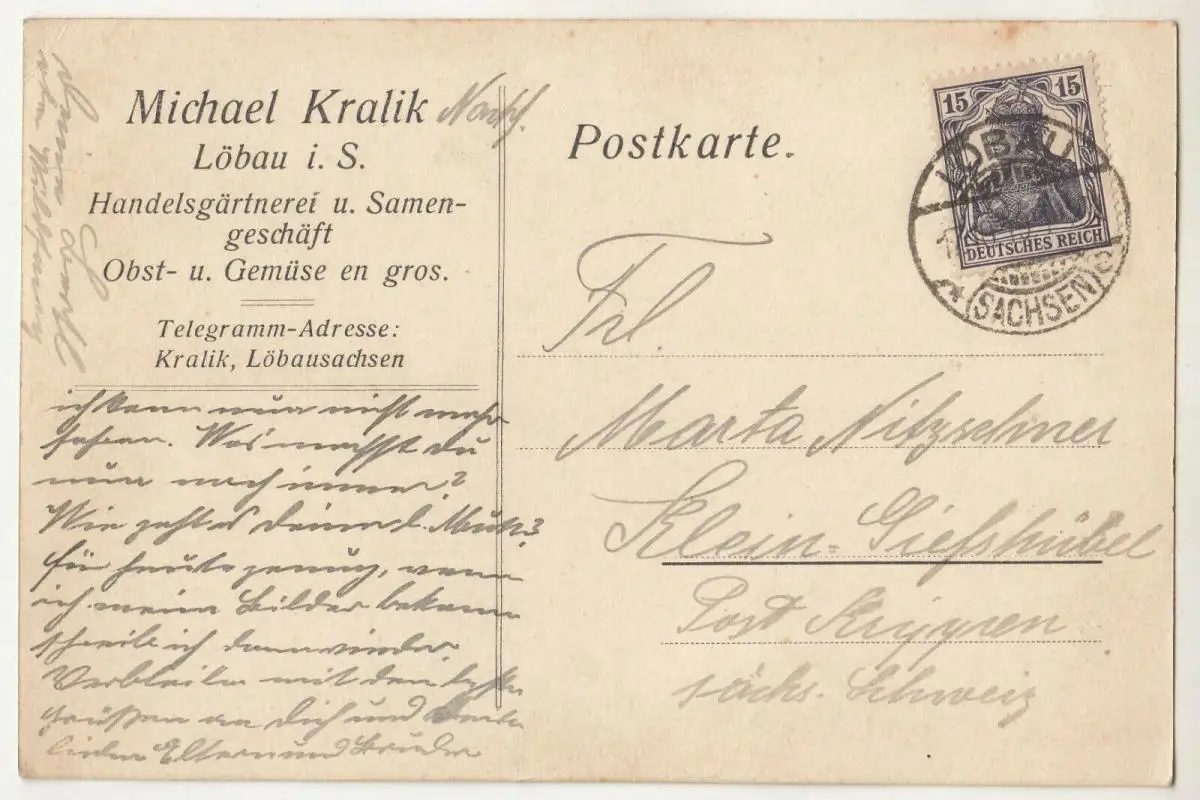 Michael Kralik Nachf.
Löbau i. S.
Handelsgärtnerei u. Samen-
geschäft
Obst- u. Gemüse en gros.
Telegramm-Adresse:
Kralik, Löbausachsen
ich kann nur nicht mehr
fahren. Was machst du
nur noch immer?
Wie geht es deiner l. Mutt?
für heute genug, wenn
ich meine Bilder bekomme
schreibe ich dann wieder
Verbleibe mit den besten
Grüßen an Dich und Deine
lieben Eltern und Bruder
Postkarte.
15 15
DEUTSCHES REICH
LÖBAU
(SACHSEN)
Frl.
Marta Nitzschner
Klein-Gießhübel
Post Krippen
sächs. Schweiz